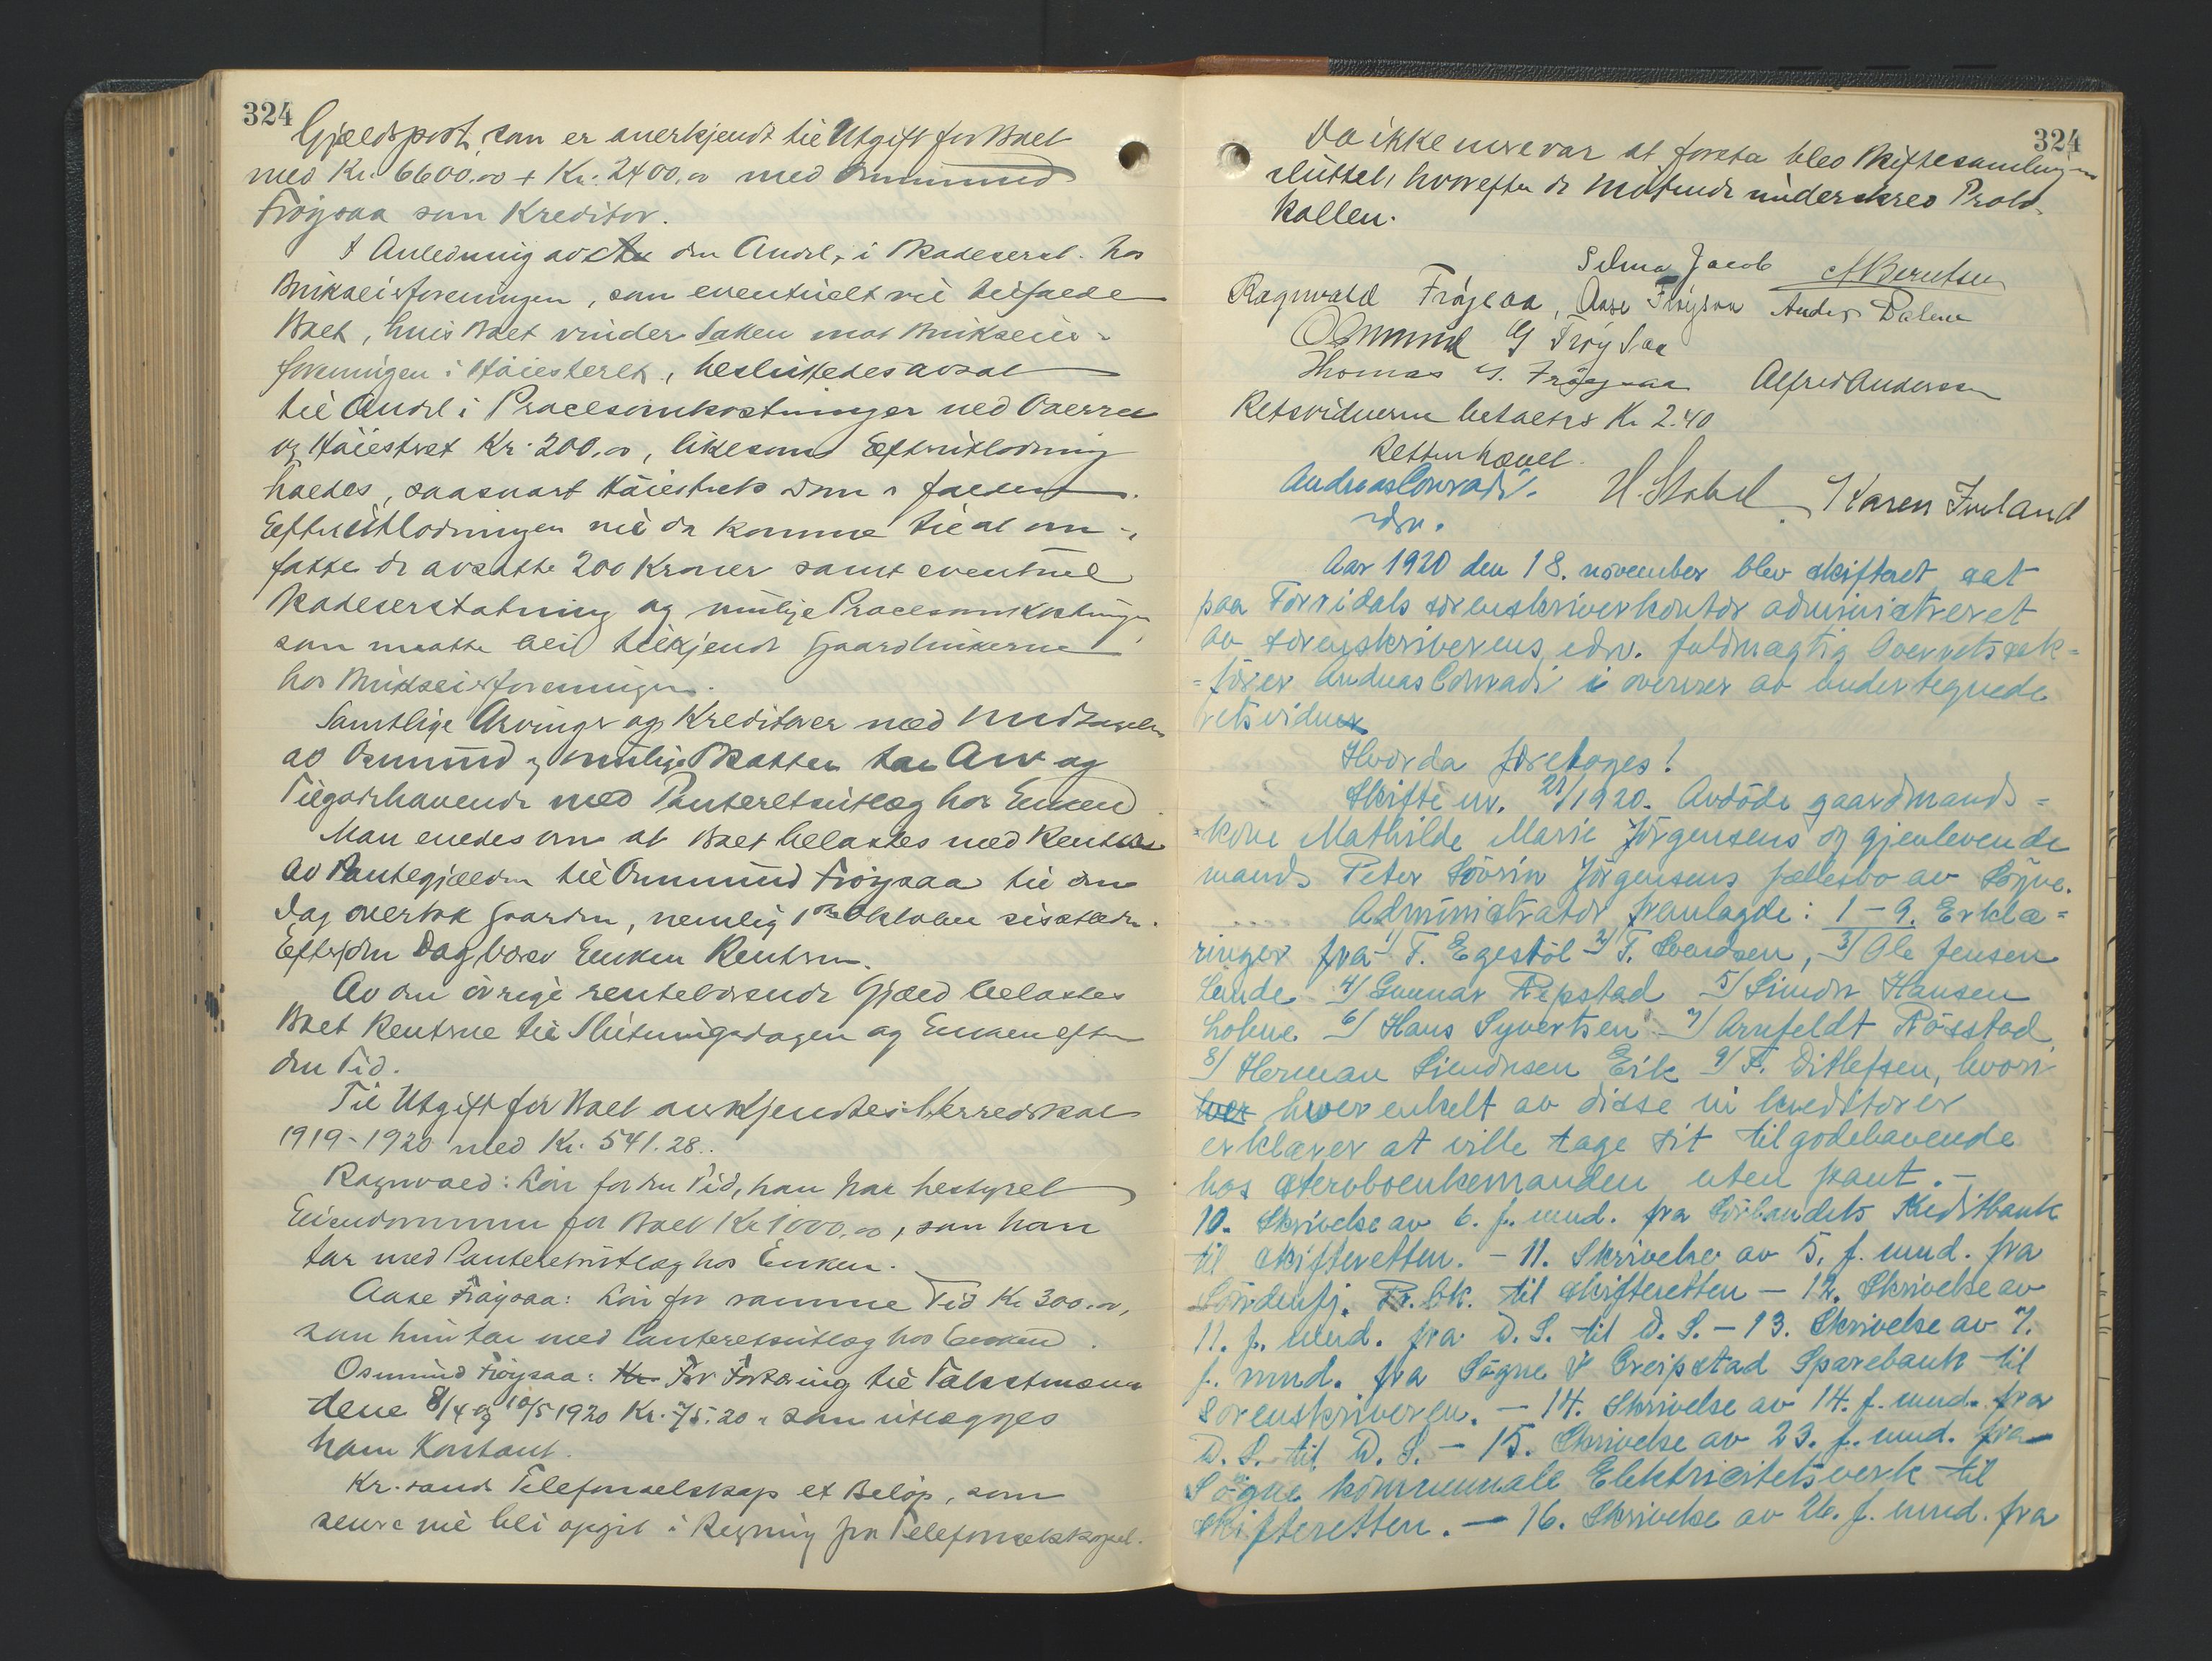 324
Gjældspost, som er anerkjendt til Utgift for Boet
med Kr. 6600.00 + Kr. 2400.00 med Osmund
Frøysaa som Kreditor.
I Anledning av den Andel, i Skadeserst. hos
Brukseierforeningen, som eventuelt vil tilfalde
Boet, hvis Boet vinder Saken mot Brukseier-
foreningen i Høiesteret, besluttedes avsat
til Andel i Procesomkostninger ved Overret
og Høiesteret Kr. 200.00, likesom Efterutlodning
holdes, saasnart Høiesterets Dom er faldt.
Efterutlodningen vil da komme til at om-
fatte de avsatte 200 Kroner samt eventuel
Skadeserstatning og mulige Procesomkostninger
som maatte bli tilkjendt Gaardbrukerne
hos Brukseierforeningen.
Samtlige Arvinger og Kreditorer med Undtagelse
av Osmund og mulige Skatter tar Arv og
Tilgodehavende med Panteretsutlæg hos Enken
Man enedes om at Boet belastes med Renterne
av Pantegjælden til Osmund Frøysaa til den
Dag overtok Gaarden, nemlig 1ste Oktober sistleden.
Efter den Dag bærer Enken Renten.
Av den øvrige rentebærende Gjæld belastes
Boet Renterne til Slutningsdagen og Enken efter
den Tid.
Til Utgift for Boet anerkjendtes: Herredsskat
1919-1920 med Kr. 541.28..
Ragnvald: Løn for den Tid, han har bestyret
Eiendommen for Boet Kr 1000.00, som han
tar med Panteretsutlæg hos Enken.
Aase Frøysaa: Løn for samme Tid Kr 300.00,
som hun tar med Panteretsutlæg hos Enken.
Osmund Frøysaa: For Fortæring til Takstmæn-
dene 8/4 og 10/5 1920 Kr. 75.20 - som utlægges
ham Kontant.
Kr.sands Telefonselskap et Beløp, som
senere vil bli opgit i Regning fra Telefonselskapet.
324
Da ikke mere var at foreta blev Skiftesamlingen
sluttet, hvorefter de Møtende underskrev Proto-
kollen.
Selma Jacob A Berntsen
Ragnvald Frøysaa, Aase Frøysaa Anders Dalene
Osmund G Frøysaa
Thomas G. Frøysaa Alfred Andersen
Retsvidnerne betaltes Kr 2.40
Retten hævet.
Andreas Conradi. H. Stabel Karen Fuland
edsv.
Aar 1920 den 18. november blev skifteret sat
paa Torridals sorenskriverkontor administreret
av sorenskriverens edsv. fuldmægtig Overretssak-
=fører Andreas Conradi i overvær av undertegnede
retsvidner
Hvorda foretoges!
Skifte nr. 21/1920. Avdøde gaardmands-
=kone Mathilde Marie Jørgensens og gjenlevende
mands Peter Søvrin Jørgensens fællesbo av Søgne.
Administrator fremlagde: 1-9. Erklæ=
ringer fra 1/ T. Egestøl 2/ T. Svendsen, 3/ Ole Jensen
Lunde 4/ Gunnar Repstad 5/ Simon Hansen
Lohne 6/ Hans Syvertsen 7/ Arnfeldt Røsstad
8/ Herman Simonsen Eik 9/ F. Ditlefsen, hvori
hver hver enkelt av disse ni kreditorer
erklærer at ville tage sit tilgodehavende
hos stervboenkemanden uten pant. -
10. Skrivelse av 6. f. mnd. fra Sørlandets Kreditbank
til skifteretten. - 11. Skrivelse av 5. f. mnd. fra
Søndenfj. Pr. bk. til skifteretten - 12. Skrivelse av
11. f. mnd. fra D. S. til D. S. - 13. Skrivelse av 7.
f. mnd. fra Søgne & Greipstad Sparebank til
sorenskriveren. - 14. Skrivelse av 14. f. mnd. fra
D. S. til D. S. - 15. Skrivelse av 23. f. mnd. fra
Søgne kommunale Elektricitetsverk til
skifteretten. - 16. Skrivelse av 26. f. mnd. fra